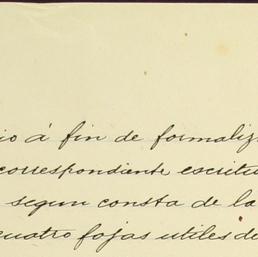 io á fin de formaliz
correspondiente escritu
segun consta de la
cuatro fojas utiles de